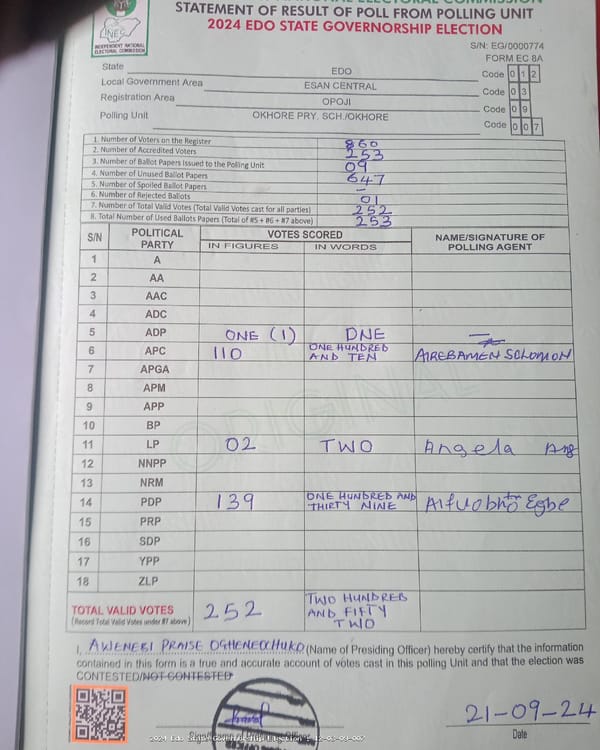 STATEMENT OF RESULT OF POLL FROM POLLING UNIT
2024 EDO STATE GOVERNORSHIP ELECTION
INEC
INDEPENDENT NATIONAL ELECTORAL COMMISSION
S/N: EG/0000774
FORM EC 8A
State EDO Code 0 1 2
Local Government Area ESAN CENTRAL Code 0 3
Registration Area OPOJI Code 0 9
Polling Unit OKHORE PRY. SCH./OKHORE Code 0 0 7
1. Number of Voters on the Register 860
2. Number of Accredited Voters 253
3. Number of Ballot Papers Issued to the Polling Unit 09
4. Number of Unused Ballot Papers 647
5. Number of Spoiled Ballot Papers –
6. Number of Rejected Ballots 01
7. Number of Total Valid Votes (Total Valid Votes cast for all parties) 252
8. Total Number of Used Ballots Papers (Total of #5 + #6 + #7 above) 253
S/N POLITICAL PARTY VOTES SCORED NAME/SIGNATURE OF POLLING AGENT
IN FIGURES IN WORDS
1 A
2 AA
3 AAC
4 ADC
5 ADP ONE (1) ONE
6 APC 110 ONE HUNDRED AND TEN AIREBAMEN SOLOMON
7 APGA
8 APM
9 APP
10 BP
11 LP 02 TWO Angela Ang
12 NNPP
13 NRM
14 PDP 139 ONE HUNDRED AND THIRTY NINE Egbe
15 PRP
16 SDP
17 YPP
18 ZLP
ORIGINAL
TOTAL VALID VOTES 252 TWO HUNDRED AND FIFTY TWO
(Record Total Valid Votes under #7 above)
I, AWENEBI PRAISE OGHENEOCHUKO (Name of Presiding Officer) hereby certify that the information
contained in this form is a true and accurate account of votes cast in this polling Unit and that the election was
CONTESTED/NOT CONTESTED
21-09-24
Date